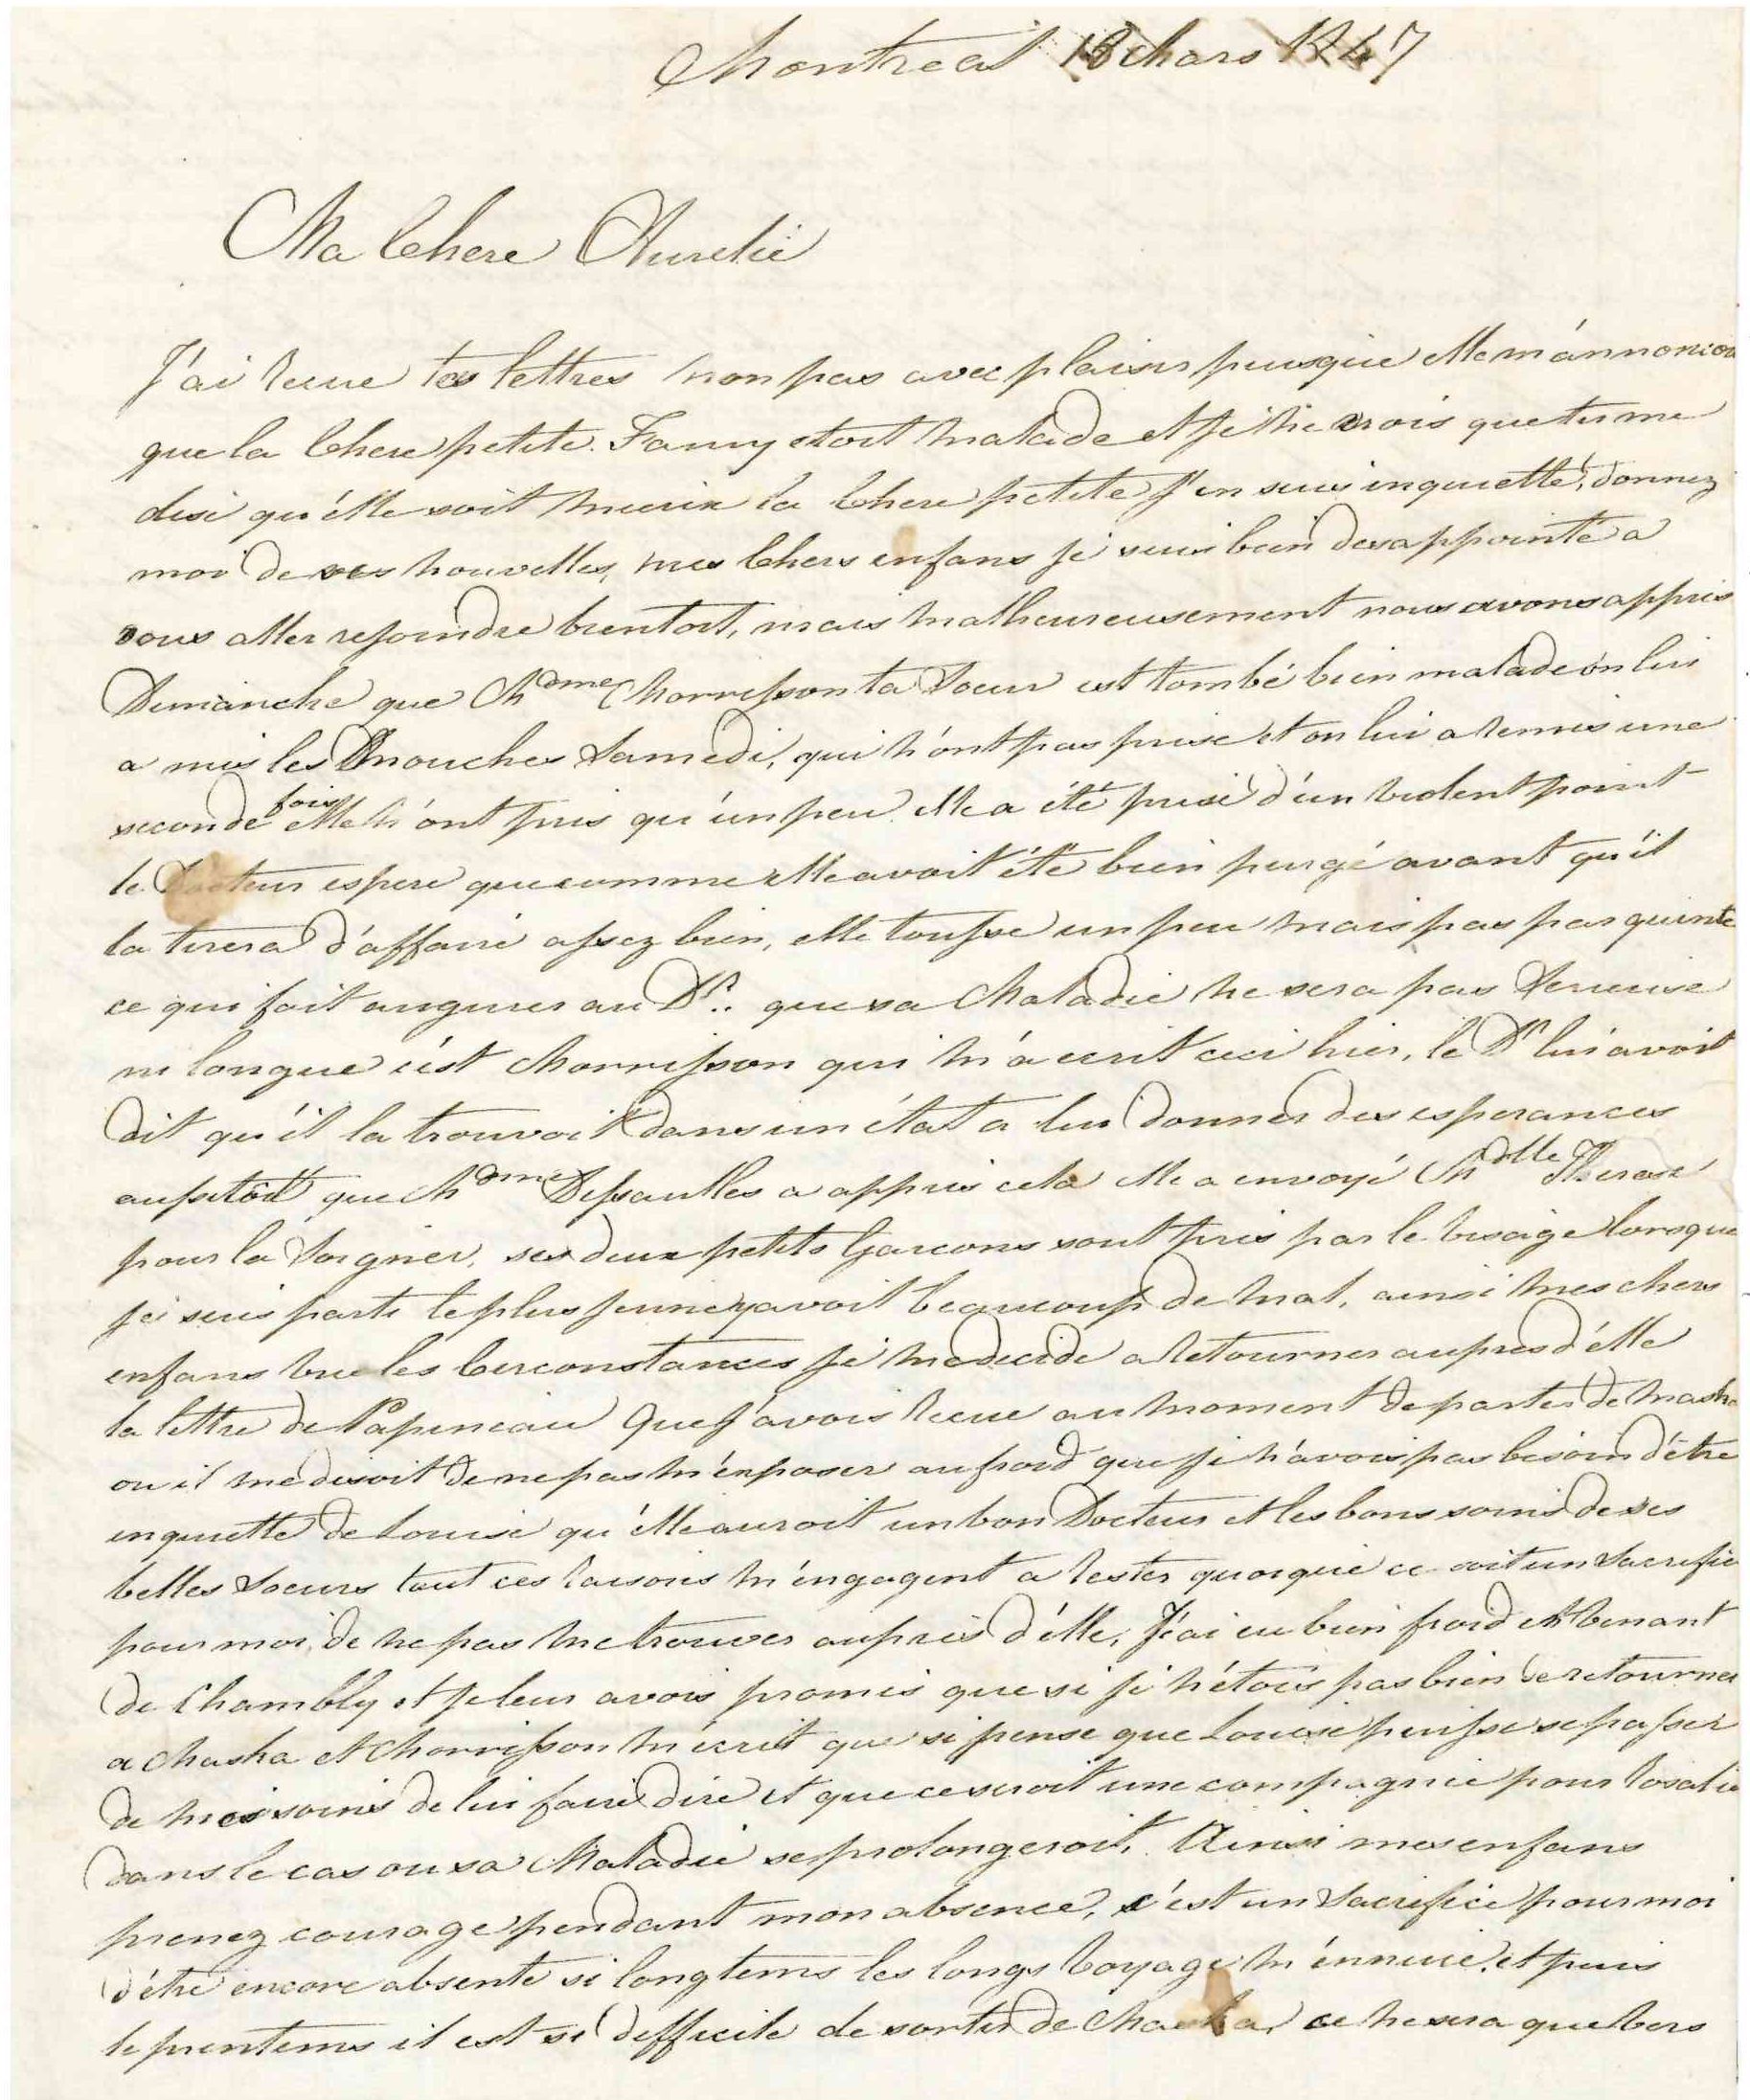 Montreal 18 Mars 1847
Ma Chere Aurelie
J'ai recue tes lettres non pas avec plaisir puisque elle m'annoncoi
que la Chere petite Fanny etoit malade et je ne vois que tu me
dise qu'elle soit mieux la Chere petite j'en suis inquiette, donnez
moi de ses nouvelles, mes Chers enfans je suis bien desappointé a
vous aller rejoindre bientot, mais malheureusement nous avons appris
Dimanche que Mdme Morrisson ta Soeur est tombé bien malade on lui
a mis les mouches Samedi, qui n'ont pas prise et on lui a remis une
seconde fois elle n'ont pris qu'un peu. elle a été prise d'un violent point
le Docteur espere que comme elle avoit été bien purgé avant qu'il
la tirera d'affaire assez bien, elle tousse un peu mais pas par quinte
ce qui fait augurer au Dr. que sa Maladie ne sera pas Serieuse
ni longue c'est Morrisson qui m'a ecrit ceci hier, le Dr lui avoit
dit qu'il la trouvoit dans un état a lui donner des esperances
aussitôt que Mdme Dessaulles a appris cela elle a envoyé Mdlle Therese
pour la Soigner, ses deux petits Garcons sont pris par le visage lorsque
je suis parti le plus jeune y avoit beaucoup de mal, ainsi mes chers
enfans vue les Circonstances je me decide a retourner aupres d'elle
la lettre de Papineau que j'avois recue au moment de partir de Maska
ou il me disoit de ne pas m'exposer au froid que je n'avois pas besoin d'etre
inquiette de Louise qu'elle auroit un bon Docteur et les bons soins de ses
belles Soeurs tout ces raisons m'engagent a rester quoique ce soit un Sacrifice
pour moi, de ne pas me trouver aupres d'elle, J'ai eu bien froid et venant
de Chambly et je leur avois promis que si je n'etois pas bien de retourner
a Maska et Morrisson m'ecrit que si pense que Louise puisse se passer
de mes soins de lui faire dire et que ce seroit une compagnie pour Rosalie
dans le cas ou sa Maladie se prolongeroit. Ainsi mes enfans
prenez courage pendant mon absence, c'est un Sacrifice pour moi
d'étre encore absente si longtems les longs Voyage m'ennuie. et puis
le printems il est si difficile de sortir de Maska, ce ne sera que vers